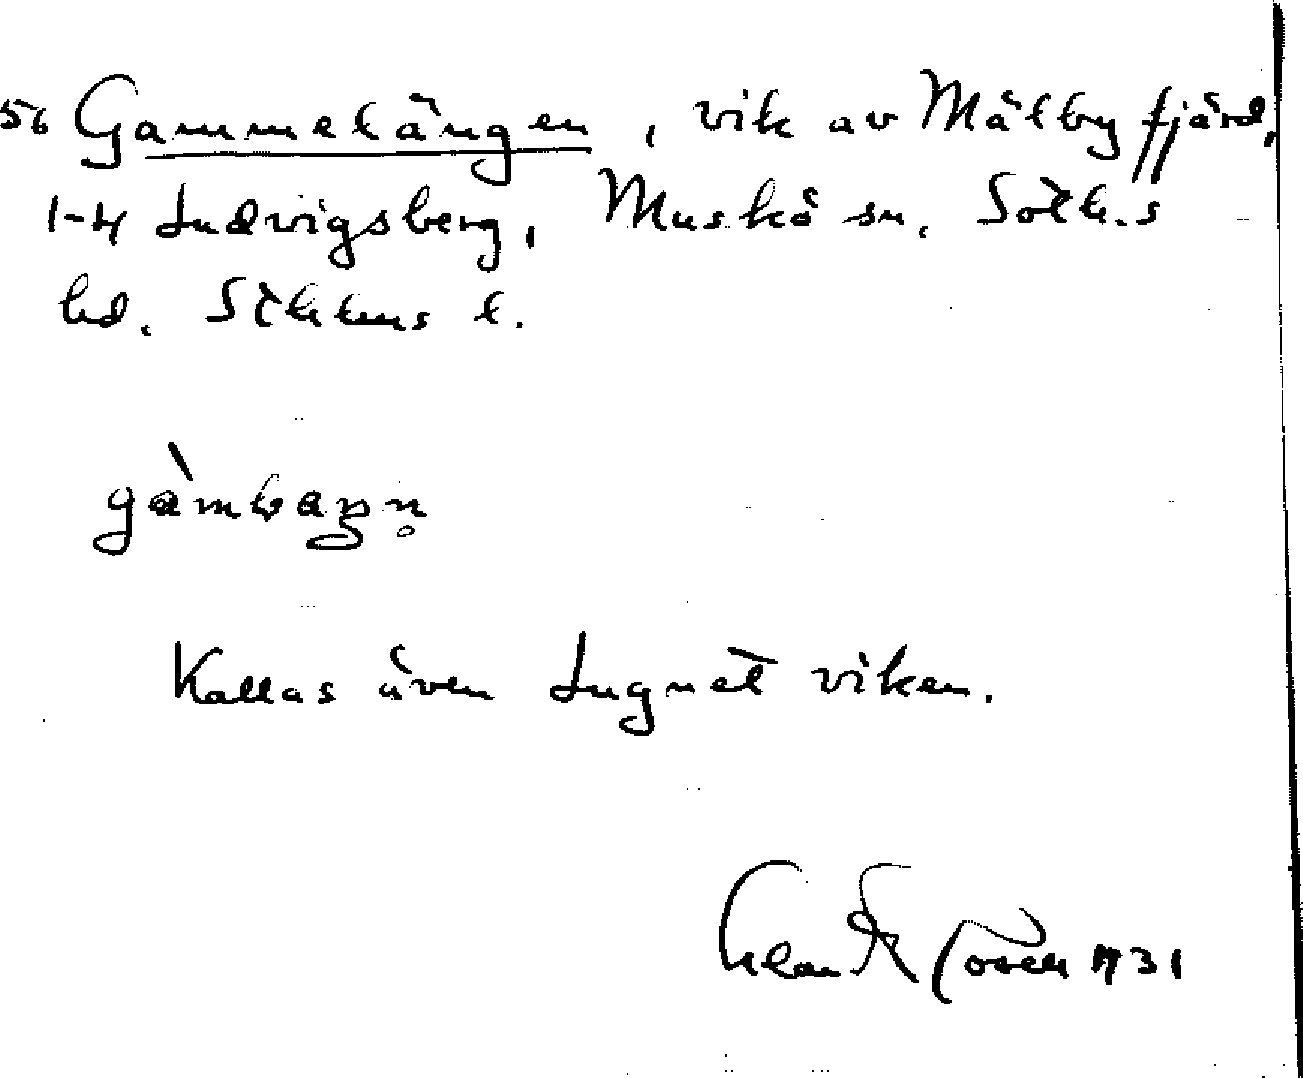 56 Gammelängen, vik av Mälby fjärd,
1-4 Ludvigsberg, Muskö sn, Soth.s
hd, Sthlms l.
Kallas även Lugnet viken.
1931